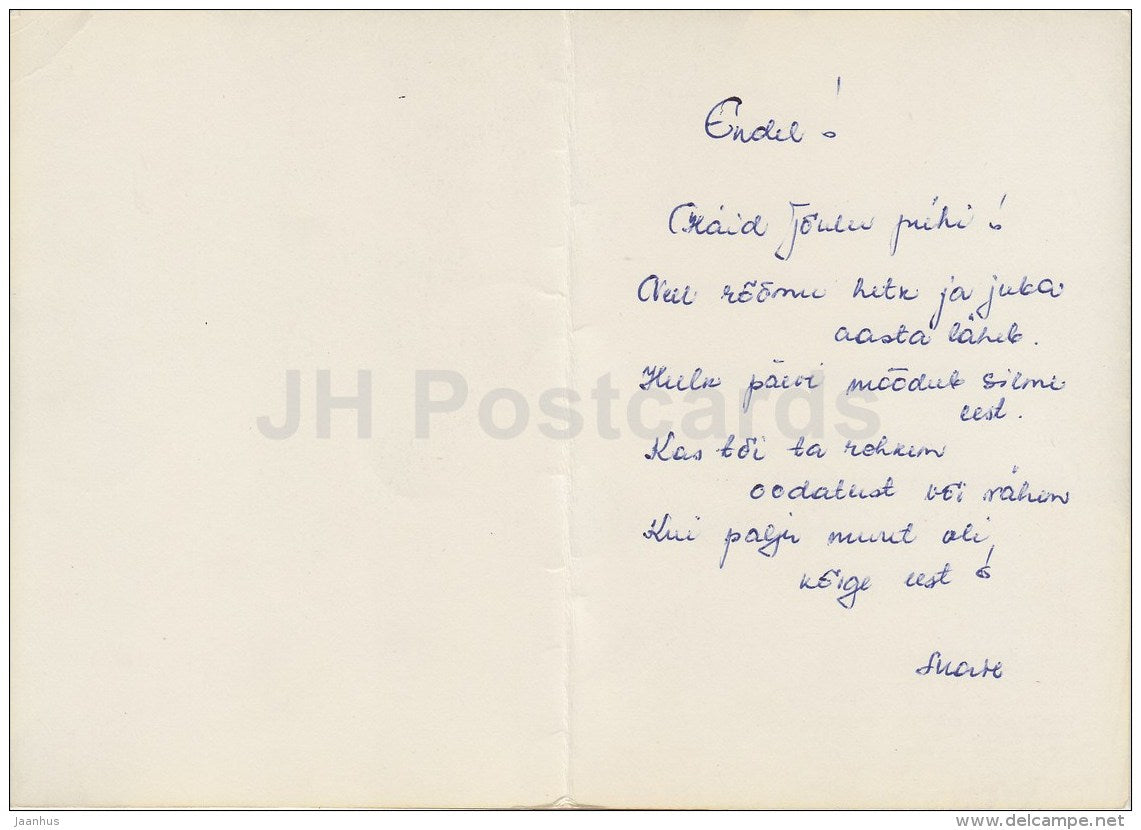 Endel!
Häid Jõulu pühi!
Veel rõõmu hetk ja juba
aasta läheb.
Hulk päevi möödub silme
eest.
Kas tõi ta rohkem
oodatust või vähem
Kui palju muret oli,
kõige eest!
JH Postcards
Jaanhus
www.delcampe.net